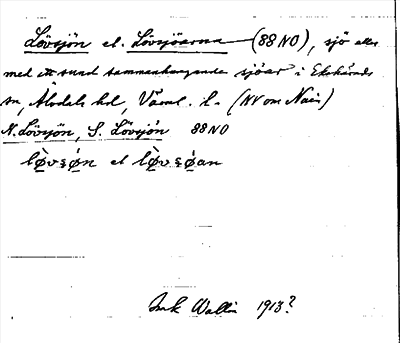 Lövsjön el. Lövsjöarna (88 NO), sjö eller
med ett sund sammanhängande sjöar i Ekshärads
sn, Älvdals hd, Värml. l. (NV om Nain)
N. Lövsjön, S. Lövsjön 88 NO
lø̀vsǿ̣n el lø̀vsǿ̣an
Wallin 1913?